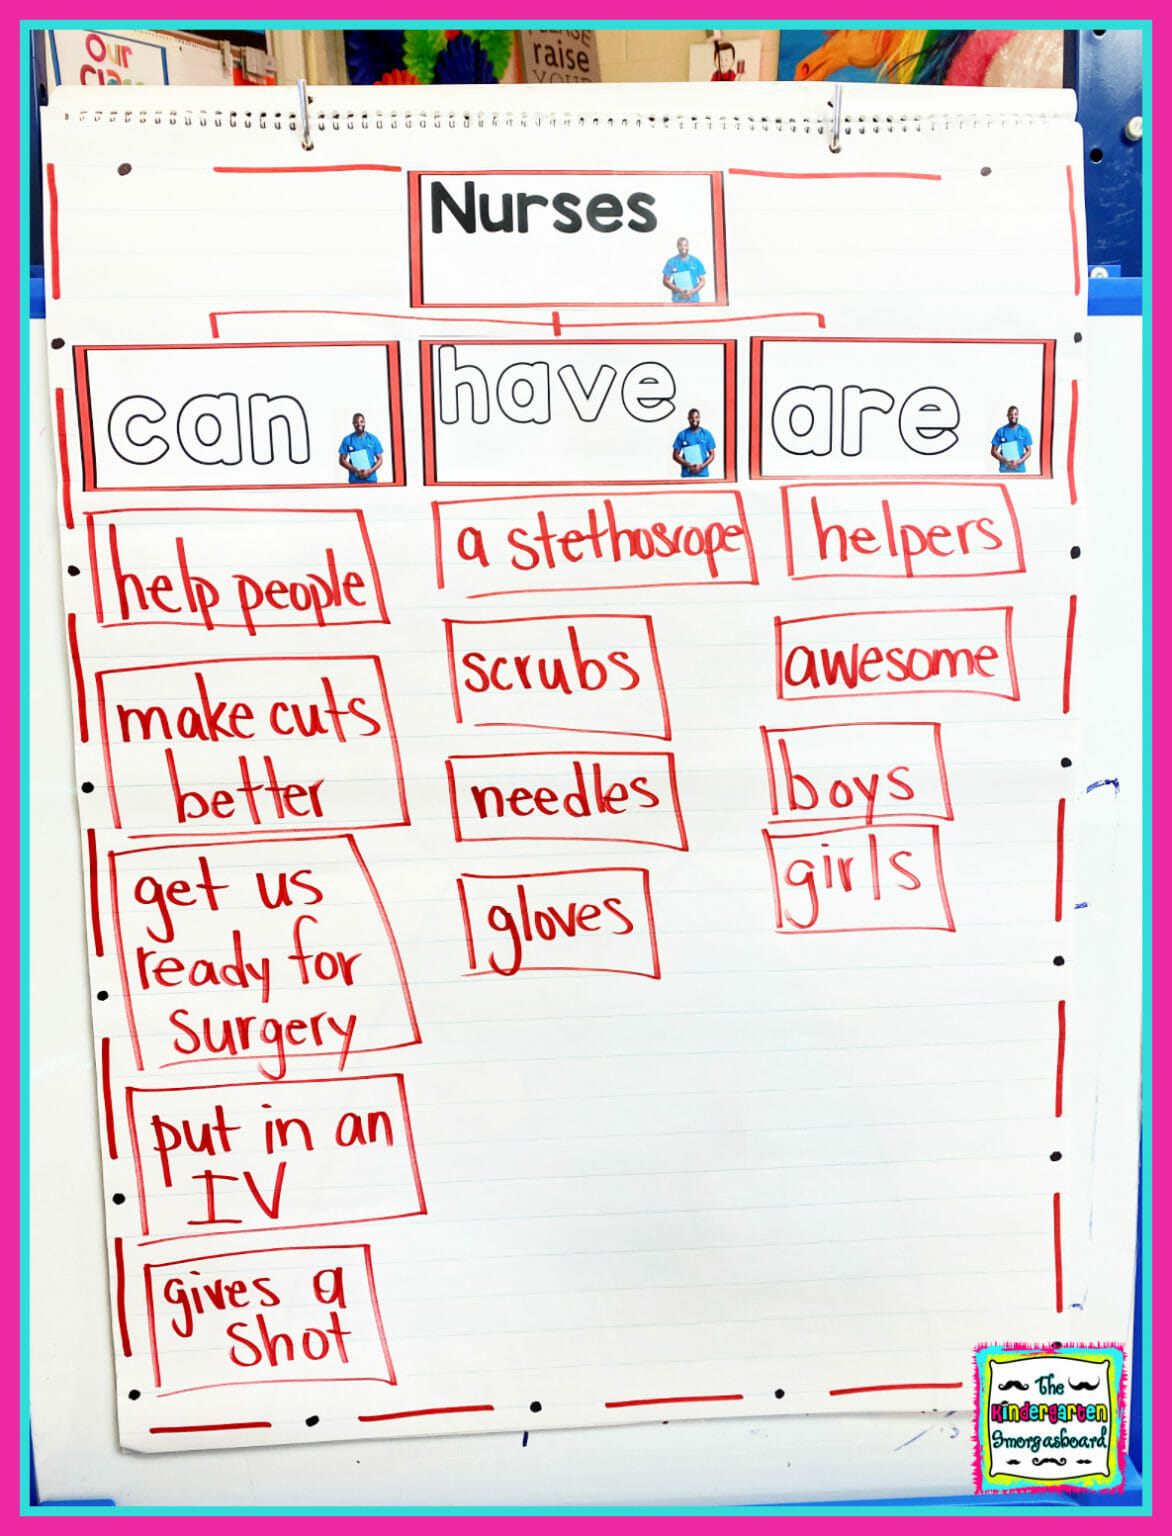 Our
Class
raise
YOUR
Nurses
can
have
are
help people
make cuts
better
get us
ready for
surgery
put in an
IV
gives a
shot
a stethoscope
scrubs
needles
gloves
helpers
awesome
boys
girls
The
Kindergarten
Smorgasboard